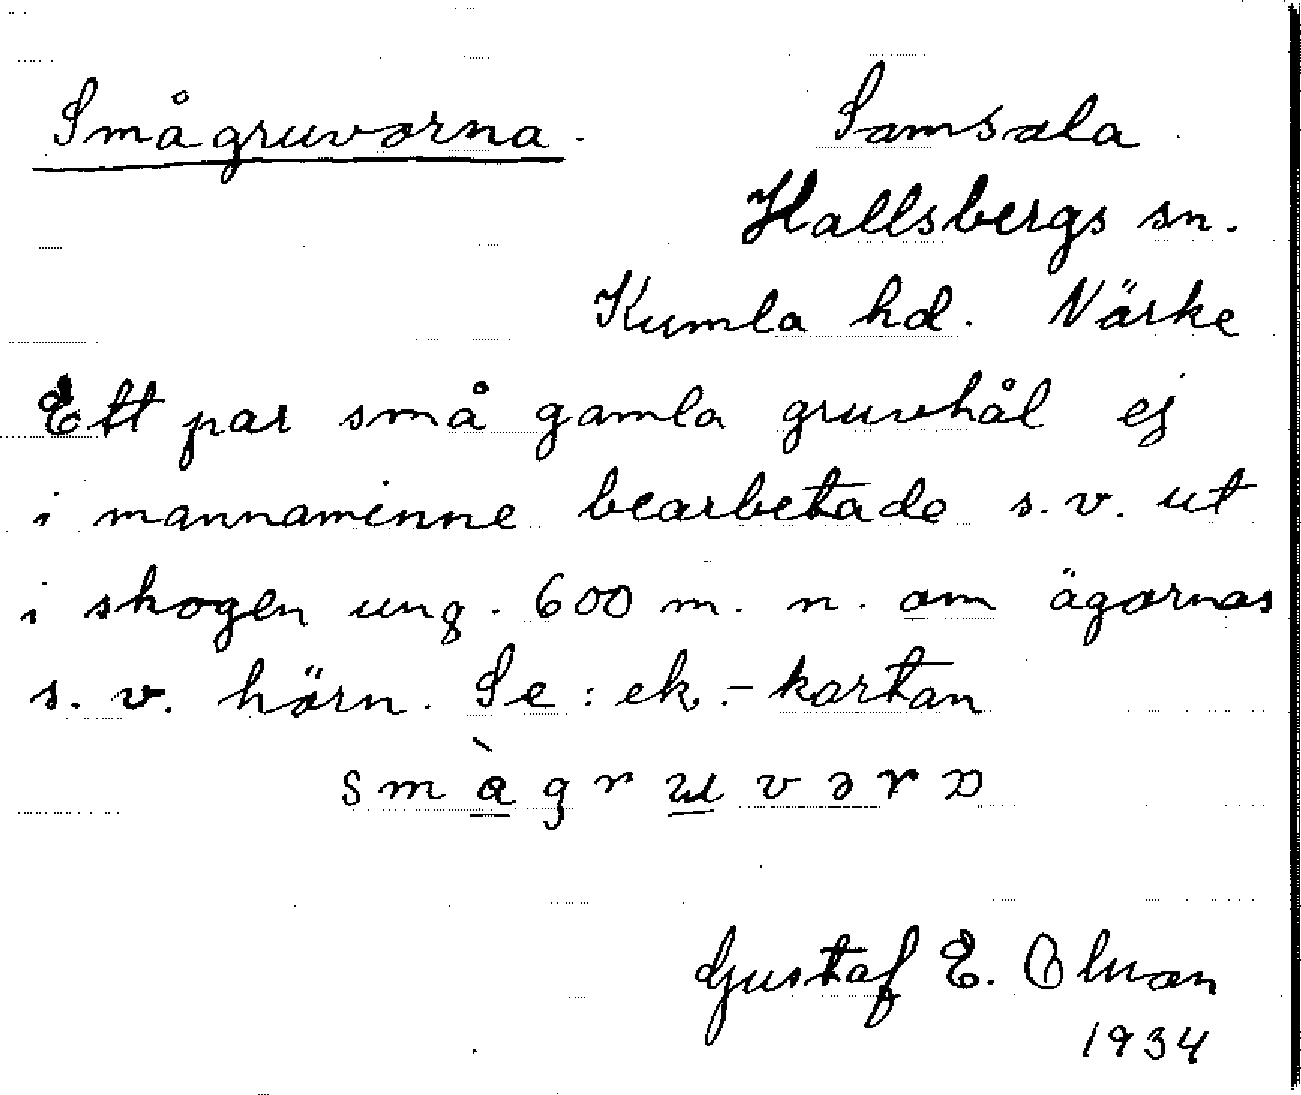 Smågruvorna. Samsala
Hallsbergs sn.
Kumla hd. Närke
Ett par små gamla gruvhål ej
i mannaminne bearbetade s.v. ut
i skogen ung. 600 m. n. om ägornas
s. v. hörn. Se: ek.-kartan
smàgruvəra
Gustaf E. Olsson
1934